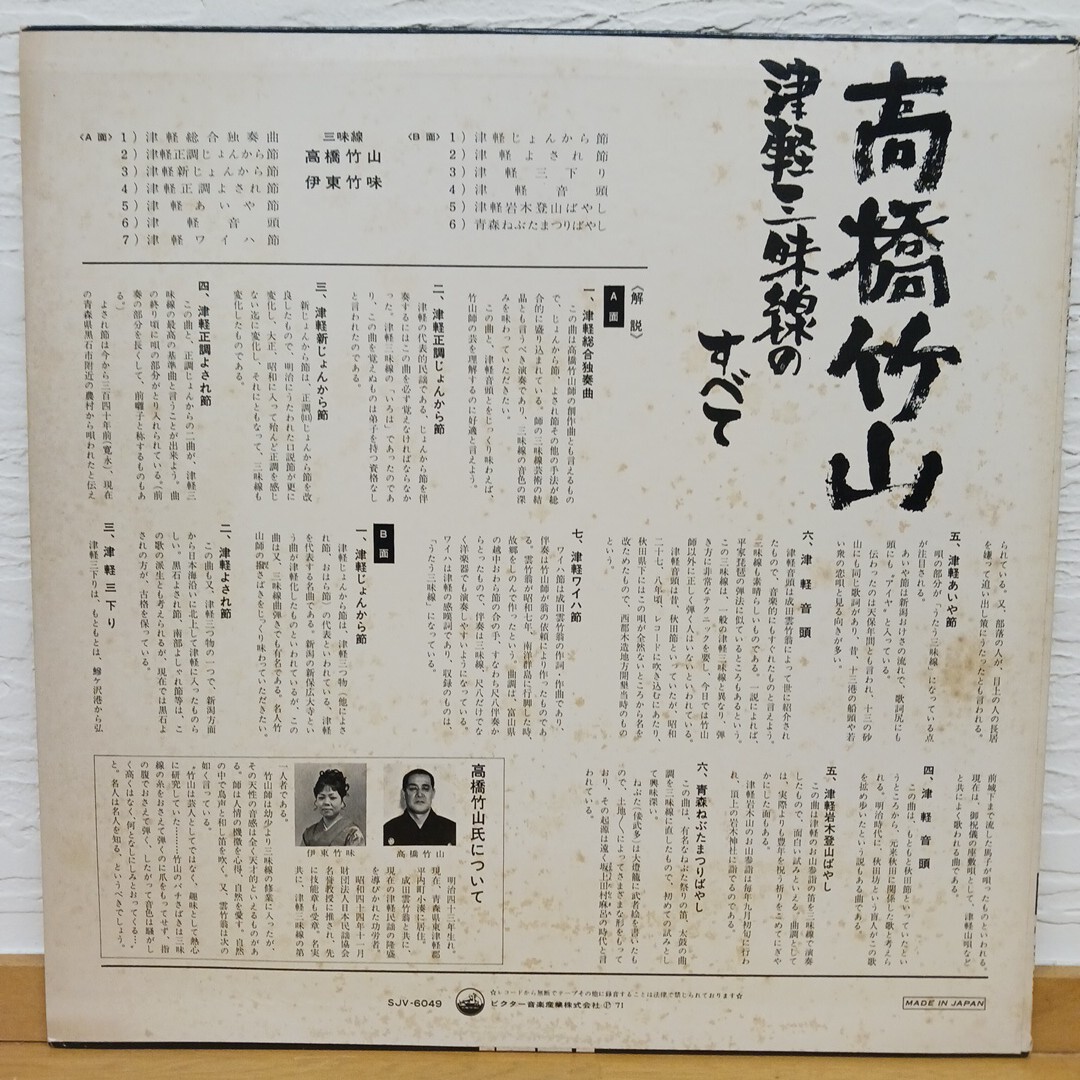 高橋竹山
津軽三味線の
すべて
〈A面〉
1) 津軽総合独奏曲
2) 津軽正調じょんから節
3) 津軽新じょんから節
4) 津軽正調よされ節
5) 津軽あいや節
6) 津軽音頭
7) 津軽ワイハ節
三味線
高橋竹山
伊東竹味
〈B面〉
1) 津軽じょんから節
2) 津軽よされ節
3) 津軽三下り
4) 津軽音頭
5) 津軽岩木登山ばやし
6) 青森ねぶたまつりばやし
《解説》
A面
一、津軽総合独奏曲
この曲は高橋竹山師の創作曲とも言えるもの
で、じょんから節、よされ節その他の手法が総
合的に盛り込まれている。師の三味線芸術の結
晶とも言うべき演奏であり、三味線の音色の深
みを味わっていただきたい。
この曲と、津軽音頭とをじっくり味わえば、
竹山師の芸を理解するのに好適と言えよう。
二、津軽正調じょんから節
津軽の代表的民謡である、じょんから節を伴
奏するにはこの曲を必ず覚えなければならなか
った。津軽三味線の「いろは」であったのであ
り、この曲を覚えぬものは弟子を持つ資格なし
と言われたのである。
三、津軽新じょんから節
新じょんから節は、正調(旧)じょんから節を改
良したもので、明治にうたわれた口説節が更に
変化し、大正、昭和に入って殆んど正調を感じ
ない迄に変化し、それにともなって、三味線も
変化したものである。
四、津軽正調よされ節
この曲と、正調じょんからの二曲が、津軽三
味線の最高の基準曲と言うことが出来よう。曲
の終り頃に唄の部分がとり入れられている。(前
奏の部分を長くして、前囃子と称するものもあ
る。)
よされ節は今から三百四十年前(寛永)、現在
の青森県黒石市附近の農村から唄われたと伝え
られている。又、部落の人が、目上の人の長居
を嫌って追い出し策にうたったとも言われる。
五、津軽あいや節
唄の部分が、「うたう三味線」になっている点
が注目される。
あいや節は新潟おけさの流れで、歌詞尻にも
〝サマ〟とも〝アイヤ〟と入っている。
伝わったのは天保年間とも言われ、十三の砂
山とも同じ歌詞があり、昔、十三港の船頭や若
い衆の恋唄と見る向きが多い。
六、津軽音頭
津軽音頭は成田雲竹翁によって世に紹介され
たもので、音楽的にもすぐれたものと言えよう。
三味線も素晴らしいものである。一説によれば、
平家琵琶の弾法に似ているところもあるという。
この三味線は、一般の津軽三味線と異なり、弾
き方に非常なテクニックを要し、今日では竹山
師以外に正しく弾く人はいないといわれている。
津軽音頭は昔、秋田節といっていたが、昭和
二十七、八年頃、レコードに吹き込むにあたり、
秋田県下にはこの唄が全然ないところから名を
改めたもので、西部木造地方開墾当時のもの
という。
七、津軽ワイハ節
ワイハ節は成田雲竹翁の作詞・作曲であり、
伴奏は竹山師が翁の依頼により作ったものであ
る。雲竹翁が昭和七年、南洋群島に行脚した時、
故郷をしのんで作ったという。曲調は、富山県
の越中おわら節の合の手、すなわち尺八伴奏か
らとったもので、伴奏は三味線、尺八だけでな
く洋楽器でも演奏しやすいようになっている。
ワイハは津軽の感嘆詞であり、収録のものは、
「うたう三味線」になっている。
B面
一、津軽じょんから節
津軽じょんから節は、津軽三つ物(他によさ
れ節、おはら節)の代表といわれている。津軽
を代表する名曲である。新潟の新保広大寺とい
う曲が津軽化したものといわれているが、この
曲は又、三味線曲弾でも有名である。名人竹
山師の撥さばきをじっくり味わっていただきたい。
二、津軽よされ節
この曲も又、津軽三つ物の一つで、新潟方面
から日本海沿いに北上して津軽に入ったものら
しい。黒石よされ節、南部よしゃれ節等は、こ
の歌の派生とも考えられるが、現在では黒石よ
されの方が、古格を保っている。
三、津軽三下り
津軽三下りは、もともとは、鰺ヶ沢港から弘
前城下まで流した馬子が唄ったものといわれる。
現在は、御祝儀の座敷唄として、津軽山唄など
と共によく歌われる曲である。
四、津軽音頭
この曲は、もともと秋田節といっていたとい
うところから、元来秋田に関係した歌と考えら
れる。明治時代に、秋田坊という盲人がこの歌
を拡め歩いたという説もある曲である。
五、津軽岩木登山ばやし
この曲は津軽のお山参詣の笛を三味線で演奏
したもので、面白い試みといえる。曲調として
は、実際よりも豊年を祝う祈りをこめてにぎや
かにした面もある。
津軽岩木山のお山参詣は毎年九月初旬に行わ
れ、頂上の岩木神社に詣でるのである。
六、青森ねぶたまつりばやし
この曲は、有名なねぶた祭りの笛、太鼓の曲
調を三味線に直したもので、初めての試みとし
て興味深い。
ねぶた(倭武多)は大燈籠に武者絵を書いたも
ので、土地〱によってさまざまな形をもって
おり、その起源は遠く坂上田村麻呂の時代と言
われている。
高橋竹山氏について
高橋竹山
伊東竹味
明治四十三年生れ。
現在、青森県東津軽郡
平内町小湊に居住。
成田雲竹翁と共に、
現在の津軽民謡の隆盛
を導びかれた功労者。
昭和四十四年十一月
財団法人日本民謡協会
名誉教授に推され、先
に技能章も受章、名実
共に、津軽三味線の第
一人者である。
竹山師は幼少より三味線の修業に入ったが、
その天性の音感は全く天才的なといえるものがあ
る。師は人情の機微を心得、自然を愛す。自然
の中で鳥声と和し笛を吹く。又、雲竹翁は次の
如く言っている。
〝竹山は芸人としてではなく、趣味として熱心
に研究していた………竹山のバチさばきは三味
線の糸をおさえて弾くのに爪をもってせず、指
の腹でおさえて弾く、したがって音色は騒がし
く高くはなく、何となしにしみとおってくる…
と。名人は名人を知る、というべきでしょう。
SJV-6049
☆レコードから無断でテープその他に録音することは法律で禁じられております☆
ビクター音楽産業株式会社 Ⓟ 71
MADE IN JAPAN